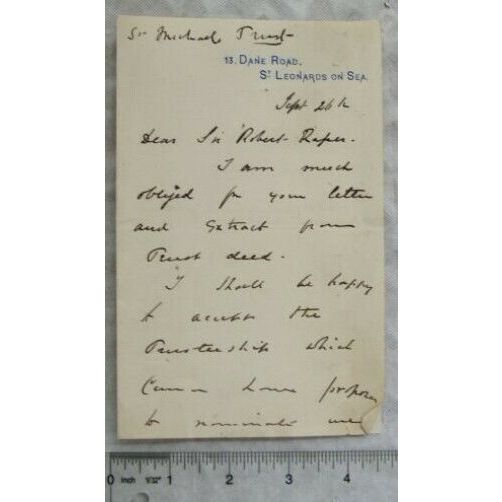 Sr Michael Trust
13. DANE ROAD.
ST LEONARDS ON SEA.
Sept 26th
Dear Sir Robert Raper.
I am much
obliged for your letter
and Extract from
Trust deed.
I shall be happy
to accept the
Trusteeship which
Canon Lowe proposes
to nominate me
0 Inch 1/32" 1 2 3 4